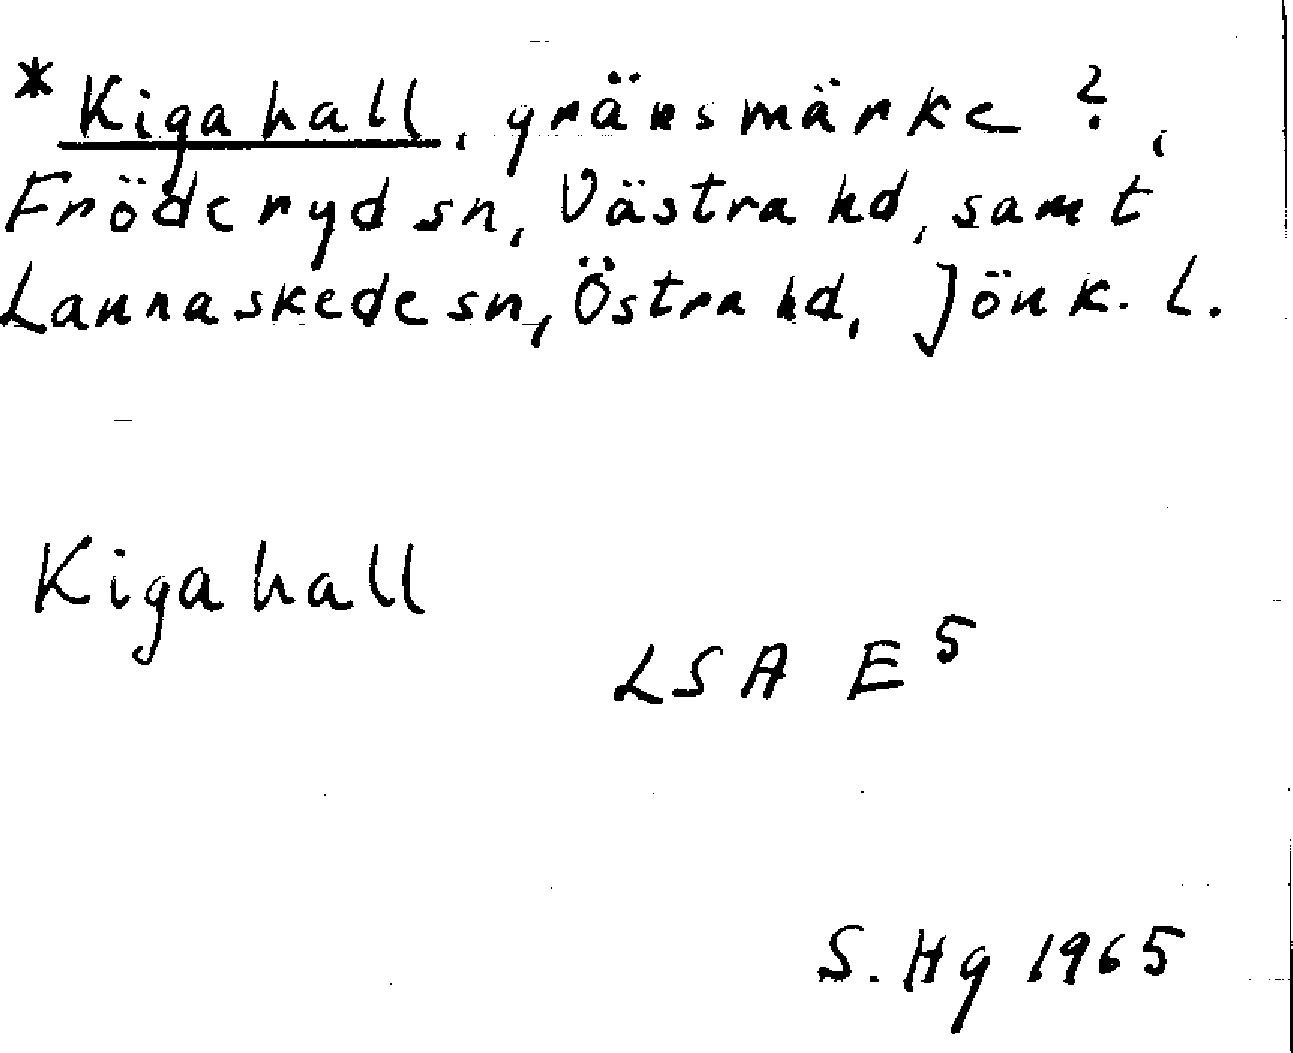 * Kigahall, gränsmärke?,
Fröderyd sn, Västra hd, samt
Lannaskede sn, Östra hd, Jönk. L.
Kigahall
LSA E 5
S. Hg 1965